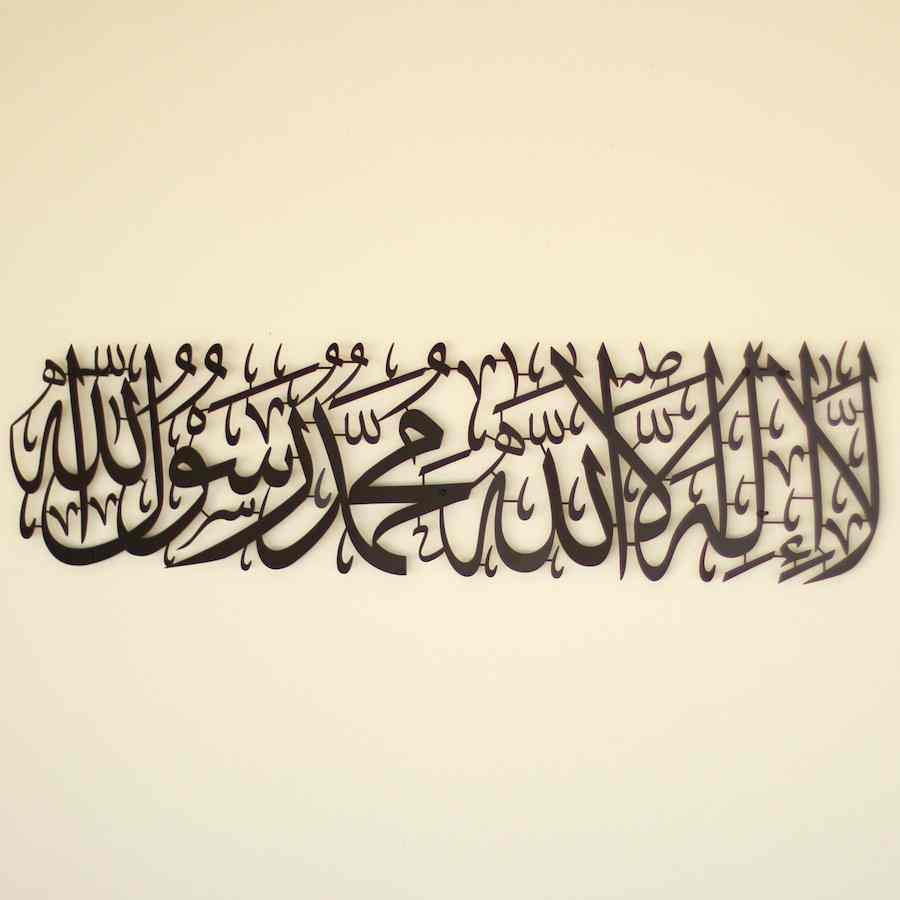 لَا إِلٰهَ إِلَّا اللّٰه مُحَمَّدٌ رَسُوْلُ اللّٰه